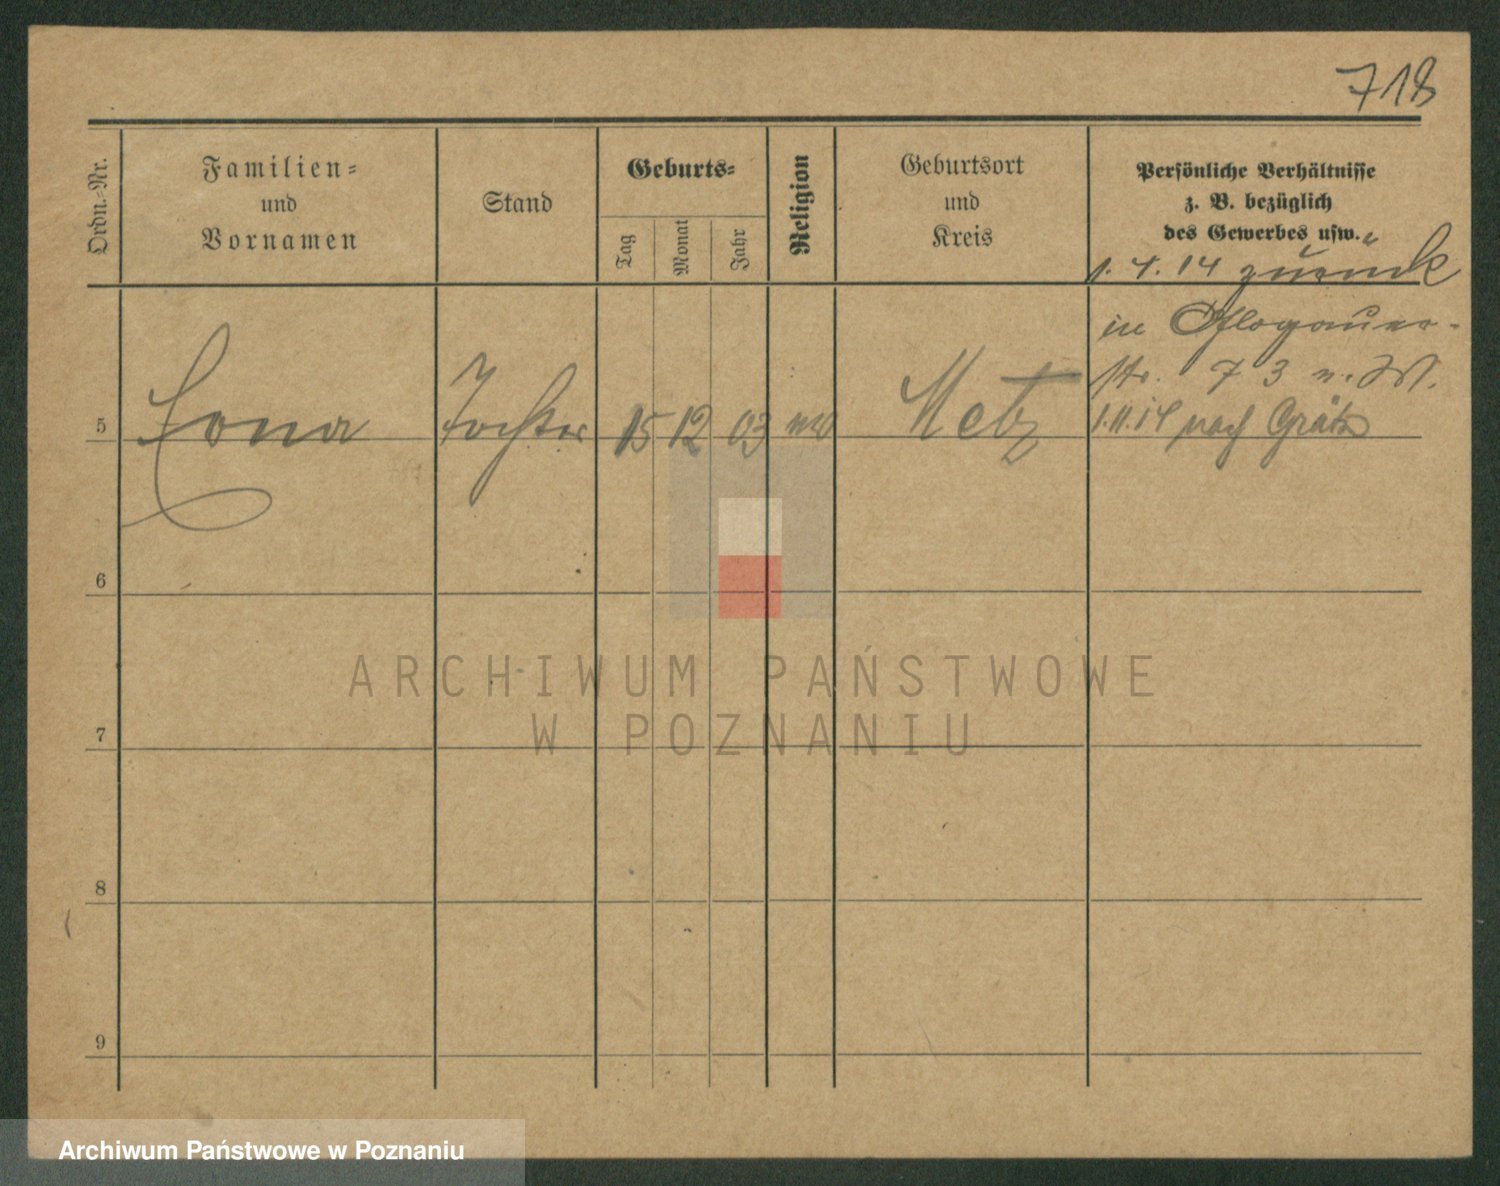 718
Ordn.-Nr.
Familien-
und
Vornamen
Stand
Geburts-
Tag
Monat
Jahr
Religion
Geburtsort
und
Kreis
Persönliche Verhältnisse
z. B. bezüglich
des Gewerbes usw.
1. 4. 14 zurück
in
str. 73
5 Tochter 15 12 03 Metz 1.11.14 nach Grätz
6
7
8
9
ARCHIWUM PAŃSTWOWE
W POZNANIU
Archiwum Państwowe w Poznaniu